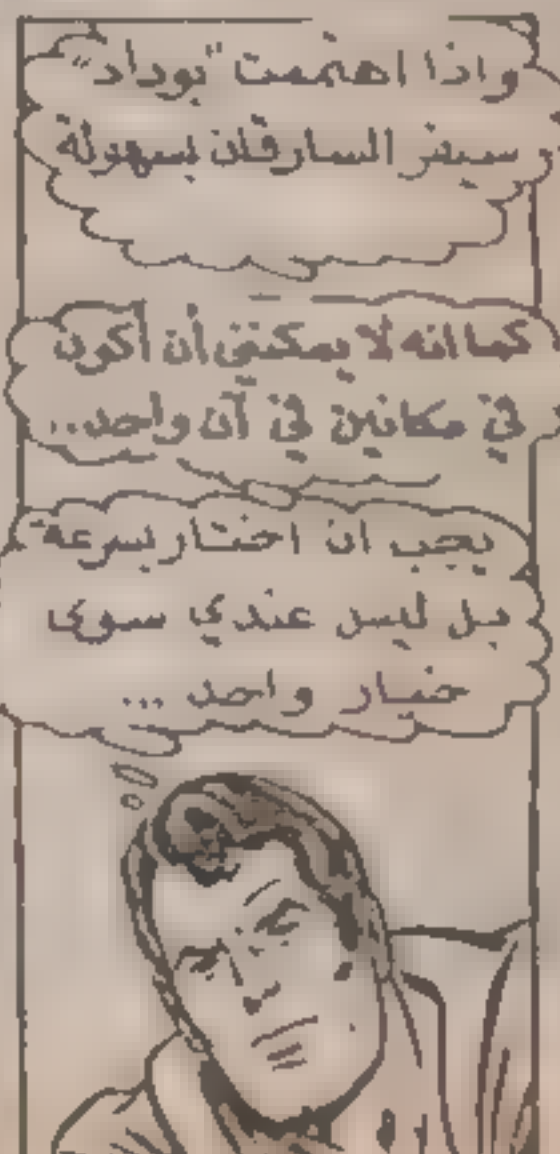 واذا اهتممت "بوداد"
سيفر السارقان بسهولة
كما انه لا يمكنني أن أكون
في مكانين في آن واحد..
يجب ان اختار بسرعة
بل ليس عندي سوى
خيار واحد ...